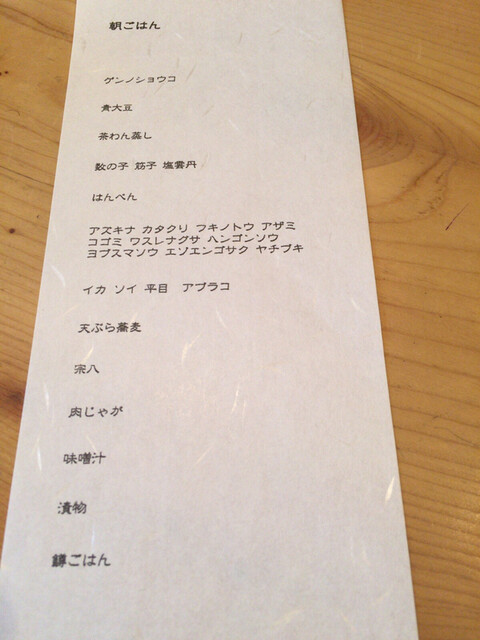 朝ごはん
ゲンノショウコ
青大豆
茶わん蒸し
数の子 筋子 塩雲丹
はんぺん
アズキナ カタクリ フキノトウ アザミ
コゴミ ワスレナグサ ハンゴンソウ
ヨブスマソウ エゾエンゴサク ヤチブキ
イカ ソイ 平目 アブラコ
天ぷら蕎麦
宗八
肉じゃが
味噌汁
漬物
鱒ごはん